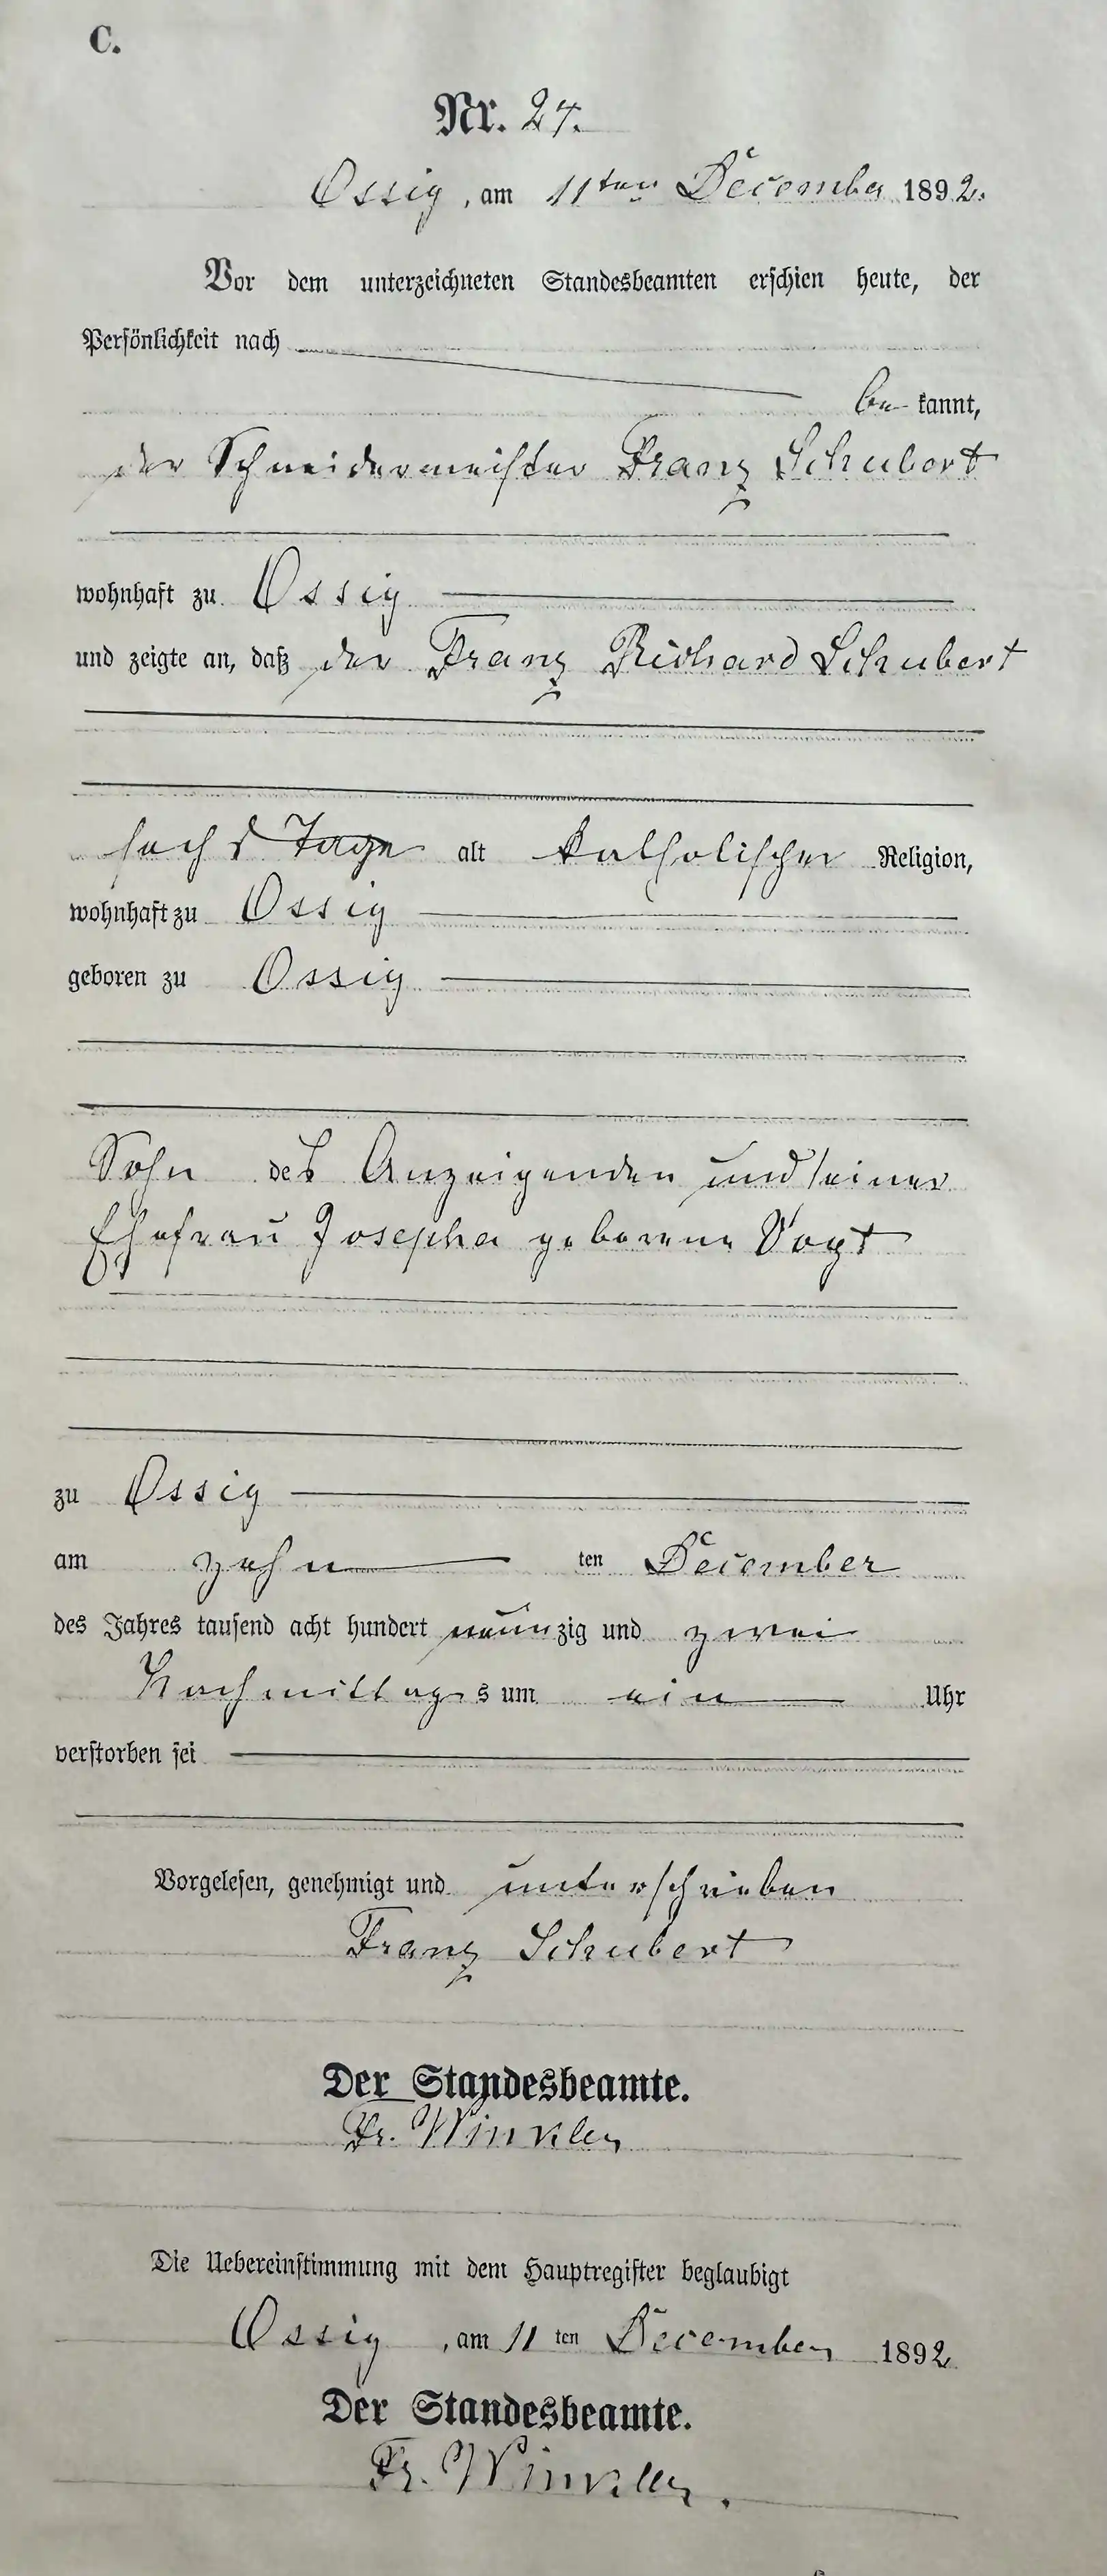 C.
Nr. 24.
Ossig, am 11ten December 1892.
Vor dem unterzeichneten Standesbeamten erschien heute, der
Persönlichkeit nach
be kannt,
der Schneidermeister Franz Schubert
wohnhaft zu Ossig
und zeigte an, daß der Franz Richard Schubert
sechs Tage alt katholischer Religion,
wohnhaft zu Ossig
geboren zu Ossig
Sohn des Anzeigenden und seiner
Ehefrau Josepha geborene Vogt
zu Ossig
am zehn ten December
des Jahres tausend acht hundert neunzig und zwei
Nachmittags um ein Uhr
verstorben sei
Vorgelesen, genehmigt und unterschrieben
Franz Schubert
Der Standesbeamte.
Fr. Winkler
Die Uebereinstimmung mit dem Hauptregister beglaubigt
Ossig, am 11 ten December 1892
Der Standesbeamte.
Fr. Winkler.